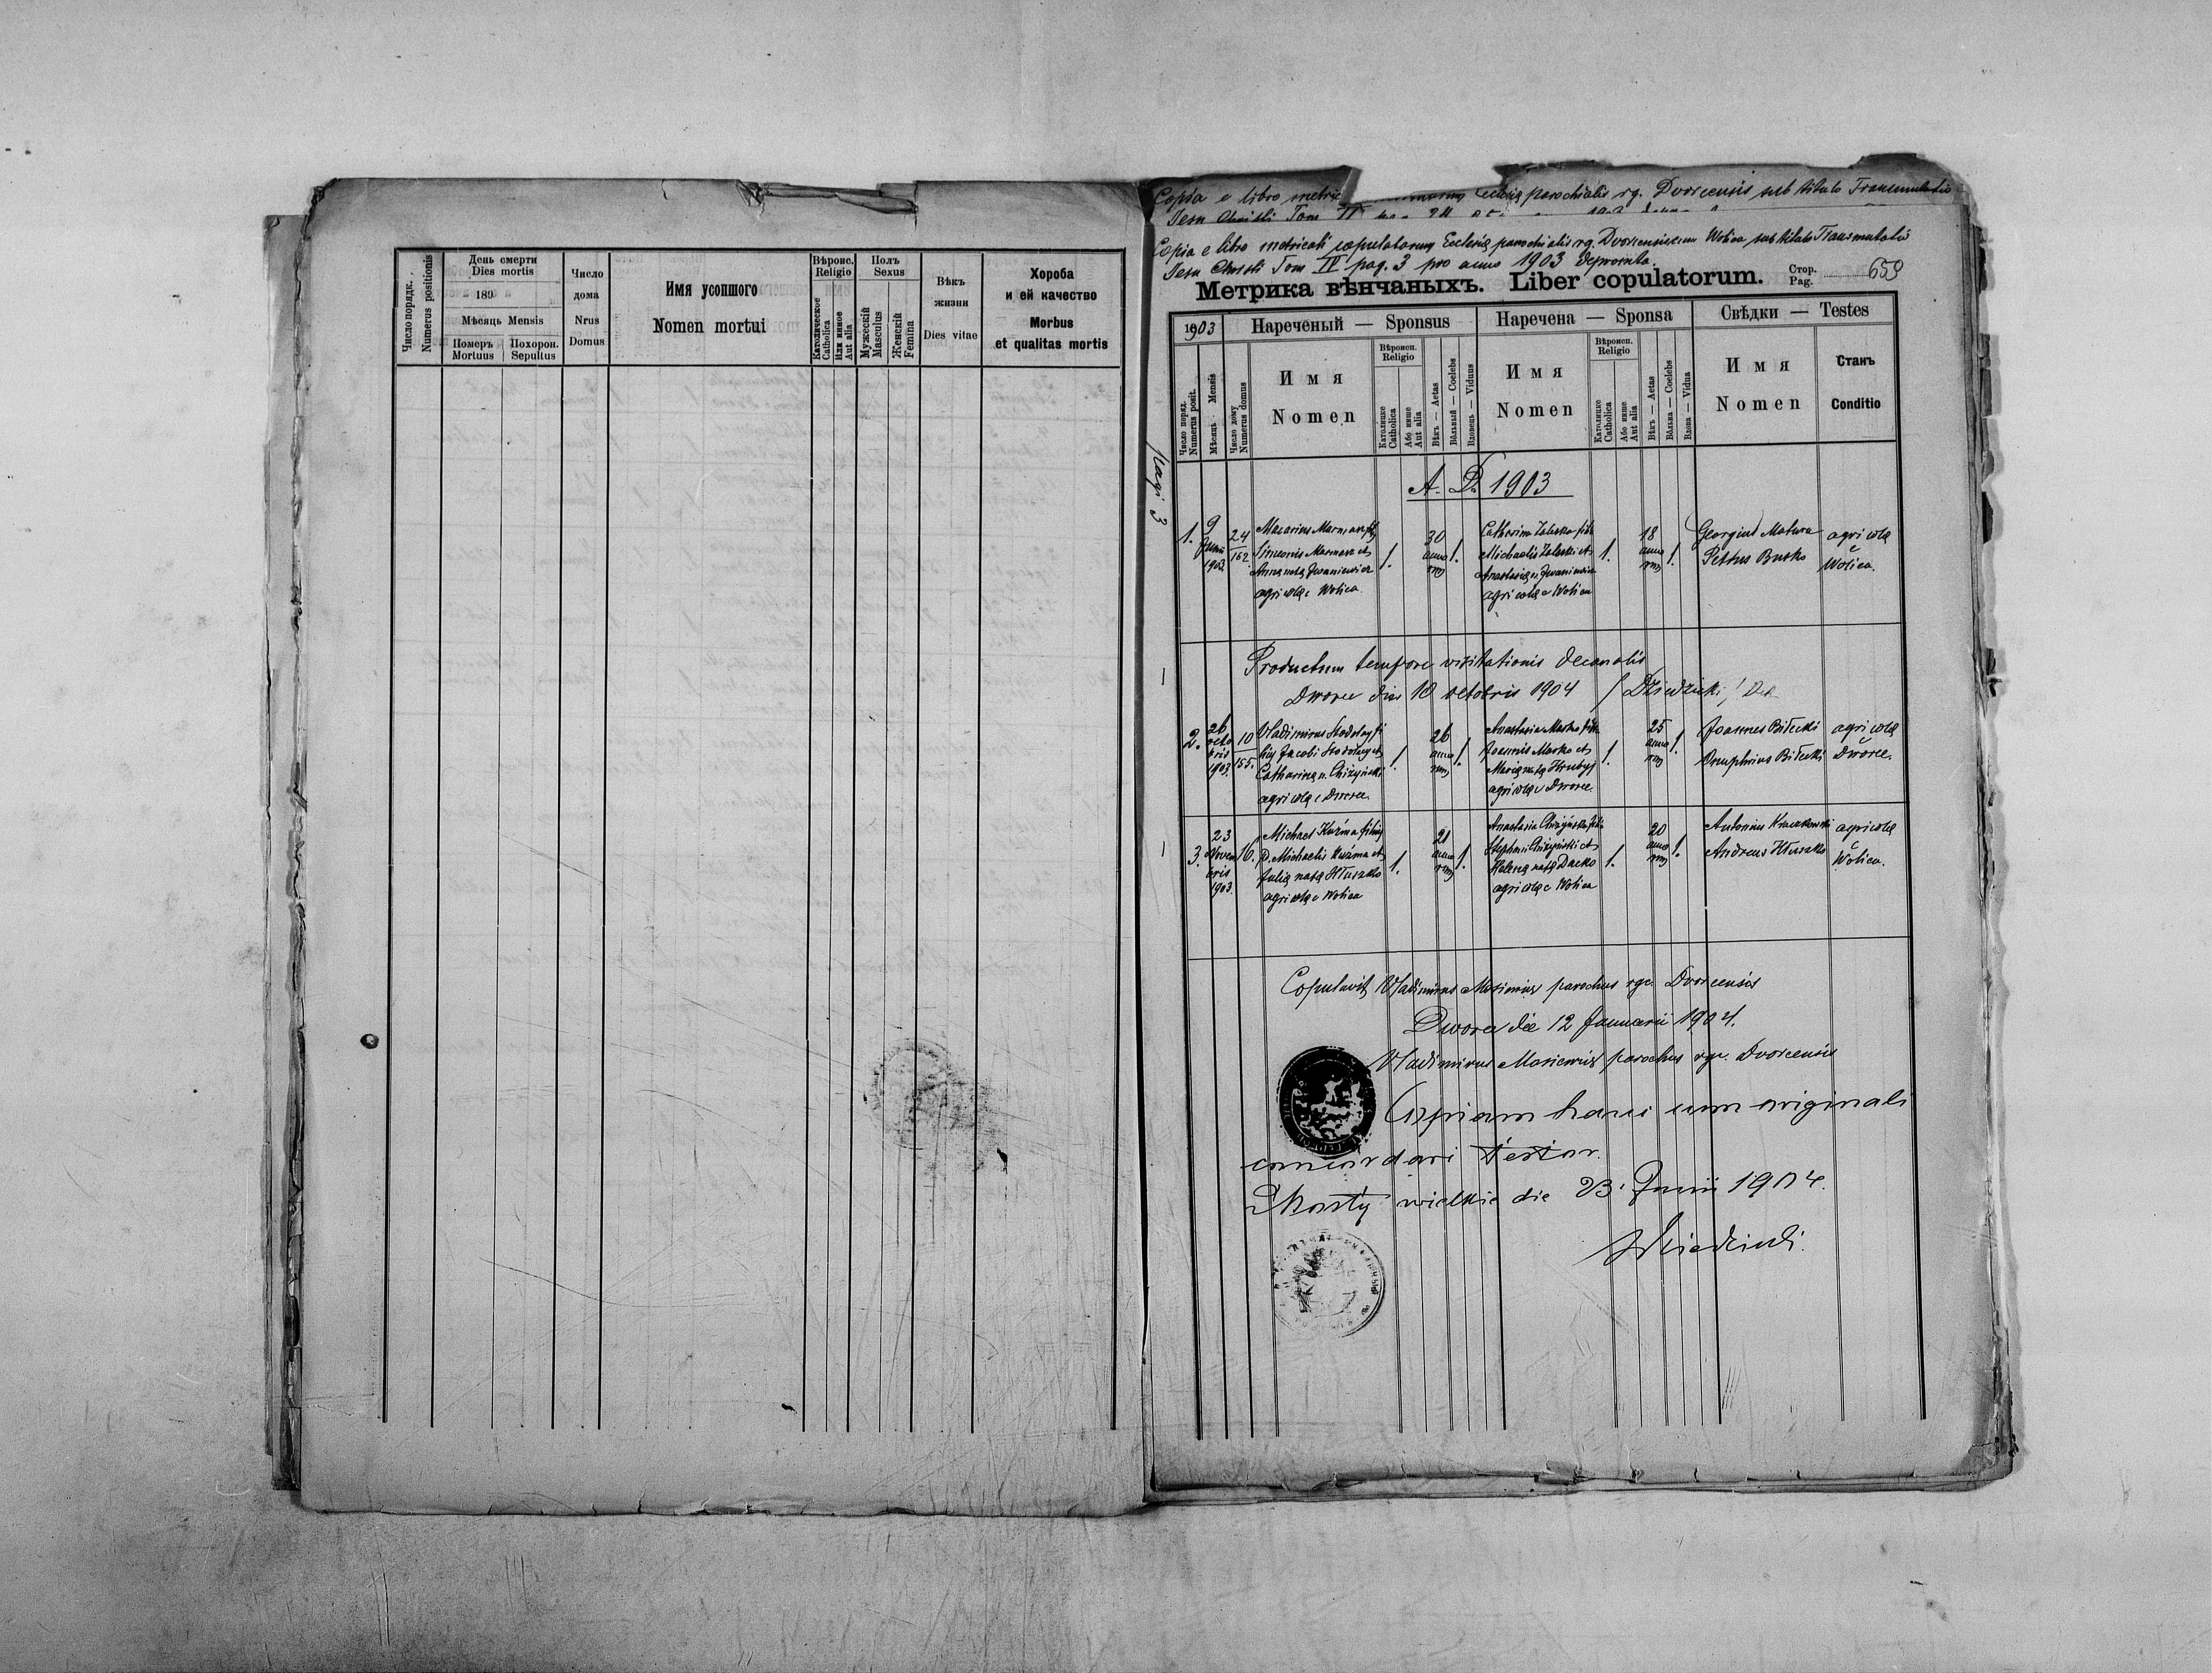 Число порядк.
Numerus positionis
День смерти
Dies mortis
189
Мѣсяць Mensis
Померъ
Mortuus
Похорон.
Sepultus
Число
дома
Nrus
Domus
Имя усопшого
Nomen mortui
Вѣроис.
Religio
Католическое
Catholica
Или инное
Aut alia
Полъ
Sexus
Мужескій
Masculus
Женскій
Femina
Вѣкъ
жизни
Dies vitae
Хороба
и ей качество
Morbus
et qualitas mortis
Copia e libro metric parochialis rg. Dvorcensis sub titulo Transmutatio
Jesu Christi Tom
Copia e libro metricali copulatorum Ecclesię parochialis rg. Dvorcensis cum Wolica sub titulo Transmutatio
Jesu Christi Tom IV pag. 3 pro anno 1903 deprompta.
Метрика вѣнчаныхъ. Liber copulatorum.
Стор.
Pag.
659
1903
Нареченый — Sponsus
Наречена — Sponsa
Свѣдки — Testes
Число поряд.
Numerus posit.
Мѣсяць Mensis
Число дому
Numerus domus
Имя
Nomen
Вѣроисп.
Religio
Католицке
Catholica
Або инше
Aut alia
Вѣкъ — Aetas
Вôльный — Coelebs
Вдовець — Viduus
Имя
Nomen
Вѣроисп.
Religio
Католицке
Catholica
Або инше
Aut alia
Вѣкъ — Aetas
Вôльна — Coelebs
Вдова — Vidua
Имя
Nomen
Станъ
Conditio
pag. 3
A. D. 1903
1.
9
Junii
1903
24
152
Simeonis Marmasz et
Anna natę Iwaniewicz
agricolę e Wolica
1.
30
anno
rum
1.
Catharina Zaleska filia
Michaelis Zaleski et
Anastasię n. Iwaniewicz
agricolę e Wolica
1.
18
anno
rum
1.
Georgius Matura
Petrus Busko
agricolę
e
Wolica.
Productum tempore visitationis decanalis
Dworce dies 10 octobris 1904 Dziedzicki
2.
26
octo
bris
1903
10
155.
Vladimirus Stodolny fi
lius Jacobi Stodolny et
Catharina n. Chizyński
agricolę e Dworce.
1.
26
anno
rum
1.
Anastasia Marko filia
Joannis Marko et
Marię natę Hrubyj
agricolę e Dworce.
1.
25
anno
rum
1.
Joannes Biłecki
Onuphrius Biłecki
agricolę
e
Dworce.
3.
23
Novem
bris
1903.
16.
Michael Kuźma filius
p. Michaelis Kuźma et
Julia natę Hłuszko
agricolę e Wolica
1.
21
anno
rum
1.
Anastasia Chizyńska filia
Stephani Chizyński et
Helena natę Dacko
agricolę e Wolica
1.
20
anno
rum
1.
Antonius Kraczkowski
Andreas Hłuszko
agricolę
e
Wolica.
Copulavit Vladimirus Masiewicz parochus rgc Dvorcensis
Dworce die 12 Januarii 1904.
Vladimirus Masiewicz parochus rgc. Dvorcensis
Copiam hanc cum originali
concordari testor.
Mosty wielkie die 23. Junii 1904.
Dziedzicki.